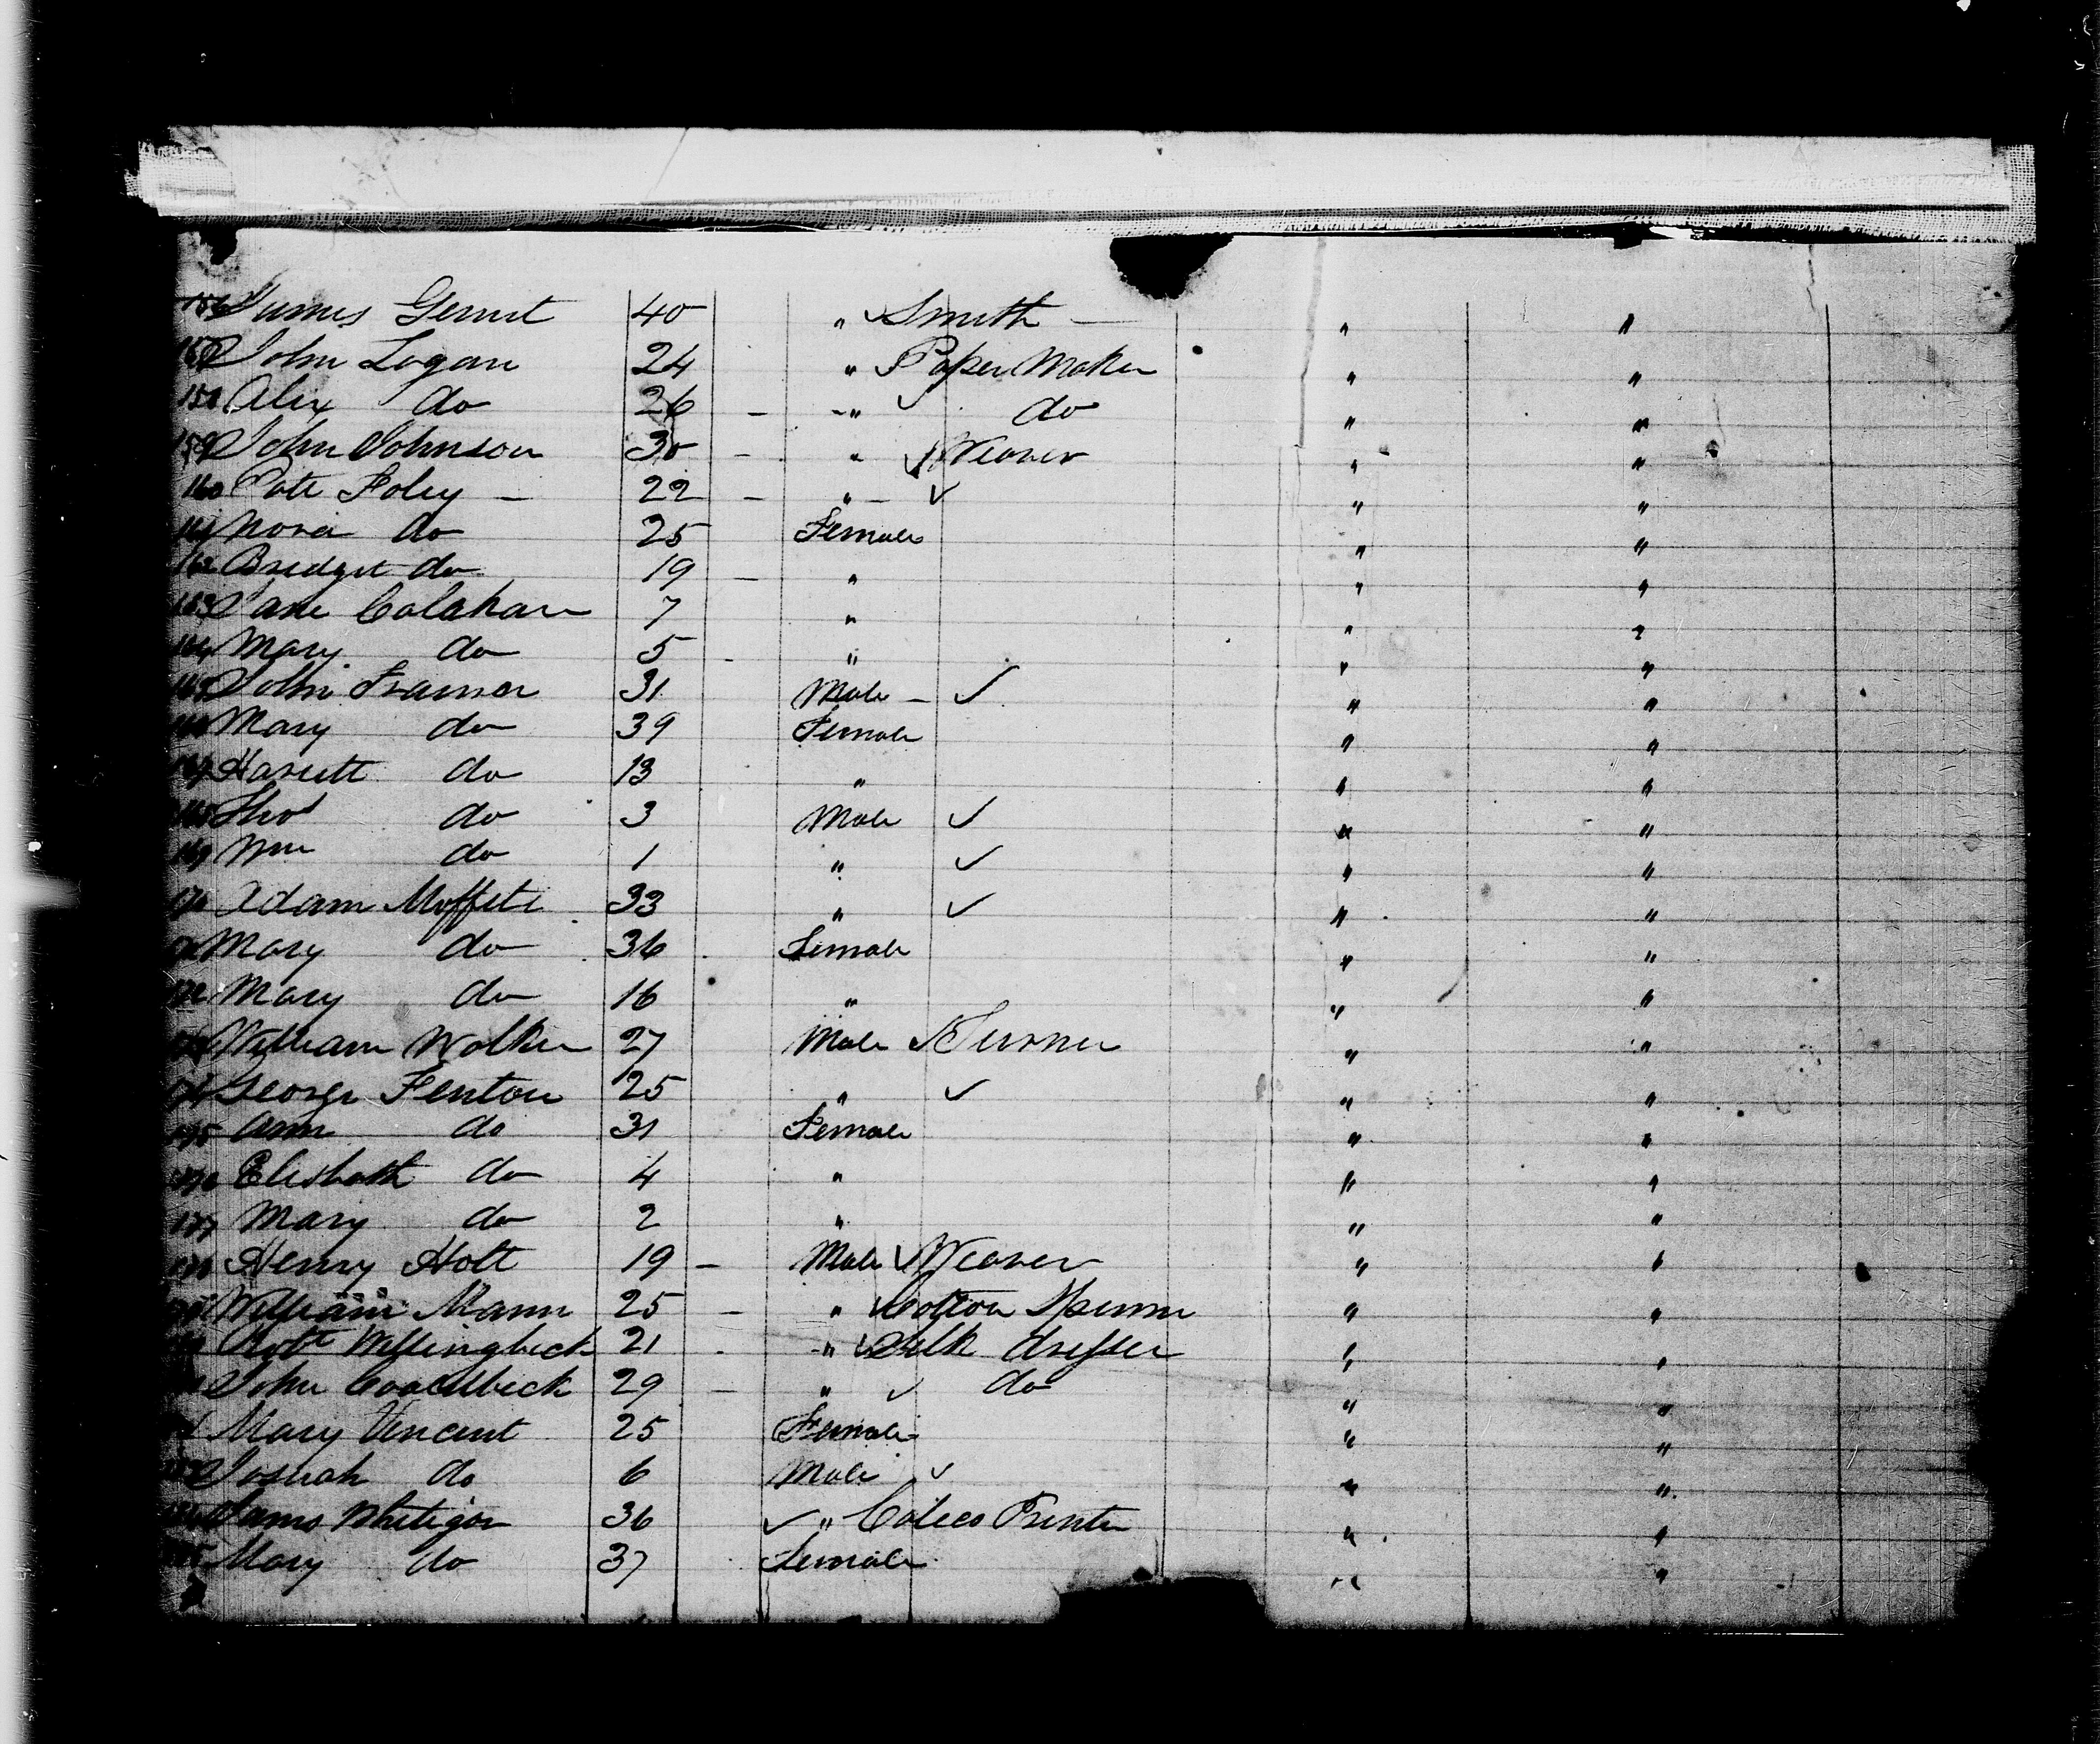 156 James Gernet 40 " Smith — " "
157 John Logan 24 " Paper Maker " "
158 Alex do 26 — " do " "
159 John Johnson 30 — " Weaver " "
160 Pate Foley — 22 — " — " "
161 Nora do 25 Female " "
162 Bridget do 19 — " " "
163 Jane Calahan 7 " " "
164 Mary do 5 " " "
165 John Framer 31 Male — " "
166 Mary do 39 Female " "
167 Hariett do 13 " " "
168 Thos do 3 Male " "
169 Wm do 1 " " "
170 Adam Moffett 33 " " "
171 Mary do 36 Female " "
172 Mary do 16 " " "
173 William Walker 27 Male " "
174 George Fenton 25 " " "
175 Ann do 31 Female " "
176 Elesbath do 4 " " "
177 Mary do 2 " " "
178 Henry Holt 19 — Male Weaver " "
William Mann 25 — " Cotton Spinner " "
Robt Willingbeck 21 " Silk dresser " "
John 29 — " do " "
Mary Vincent 25 Female " "
Josuah do 6 Male " "
James Whitigar 36 " Calico Printer " "
185 Mary do 37 Female " "